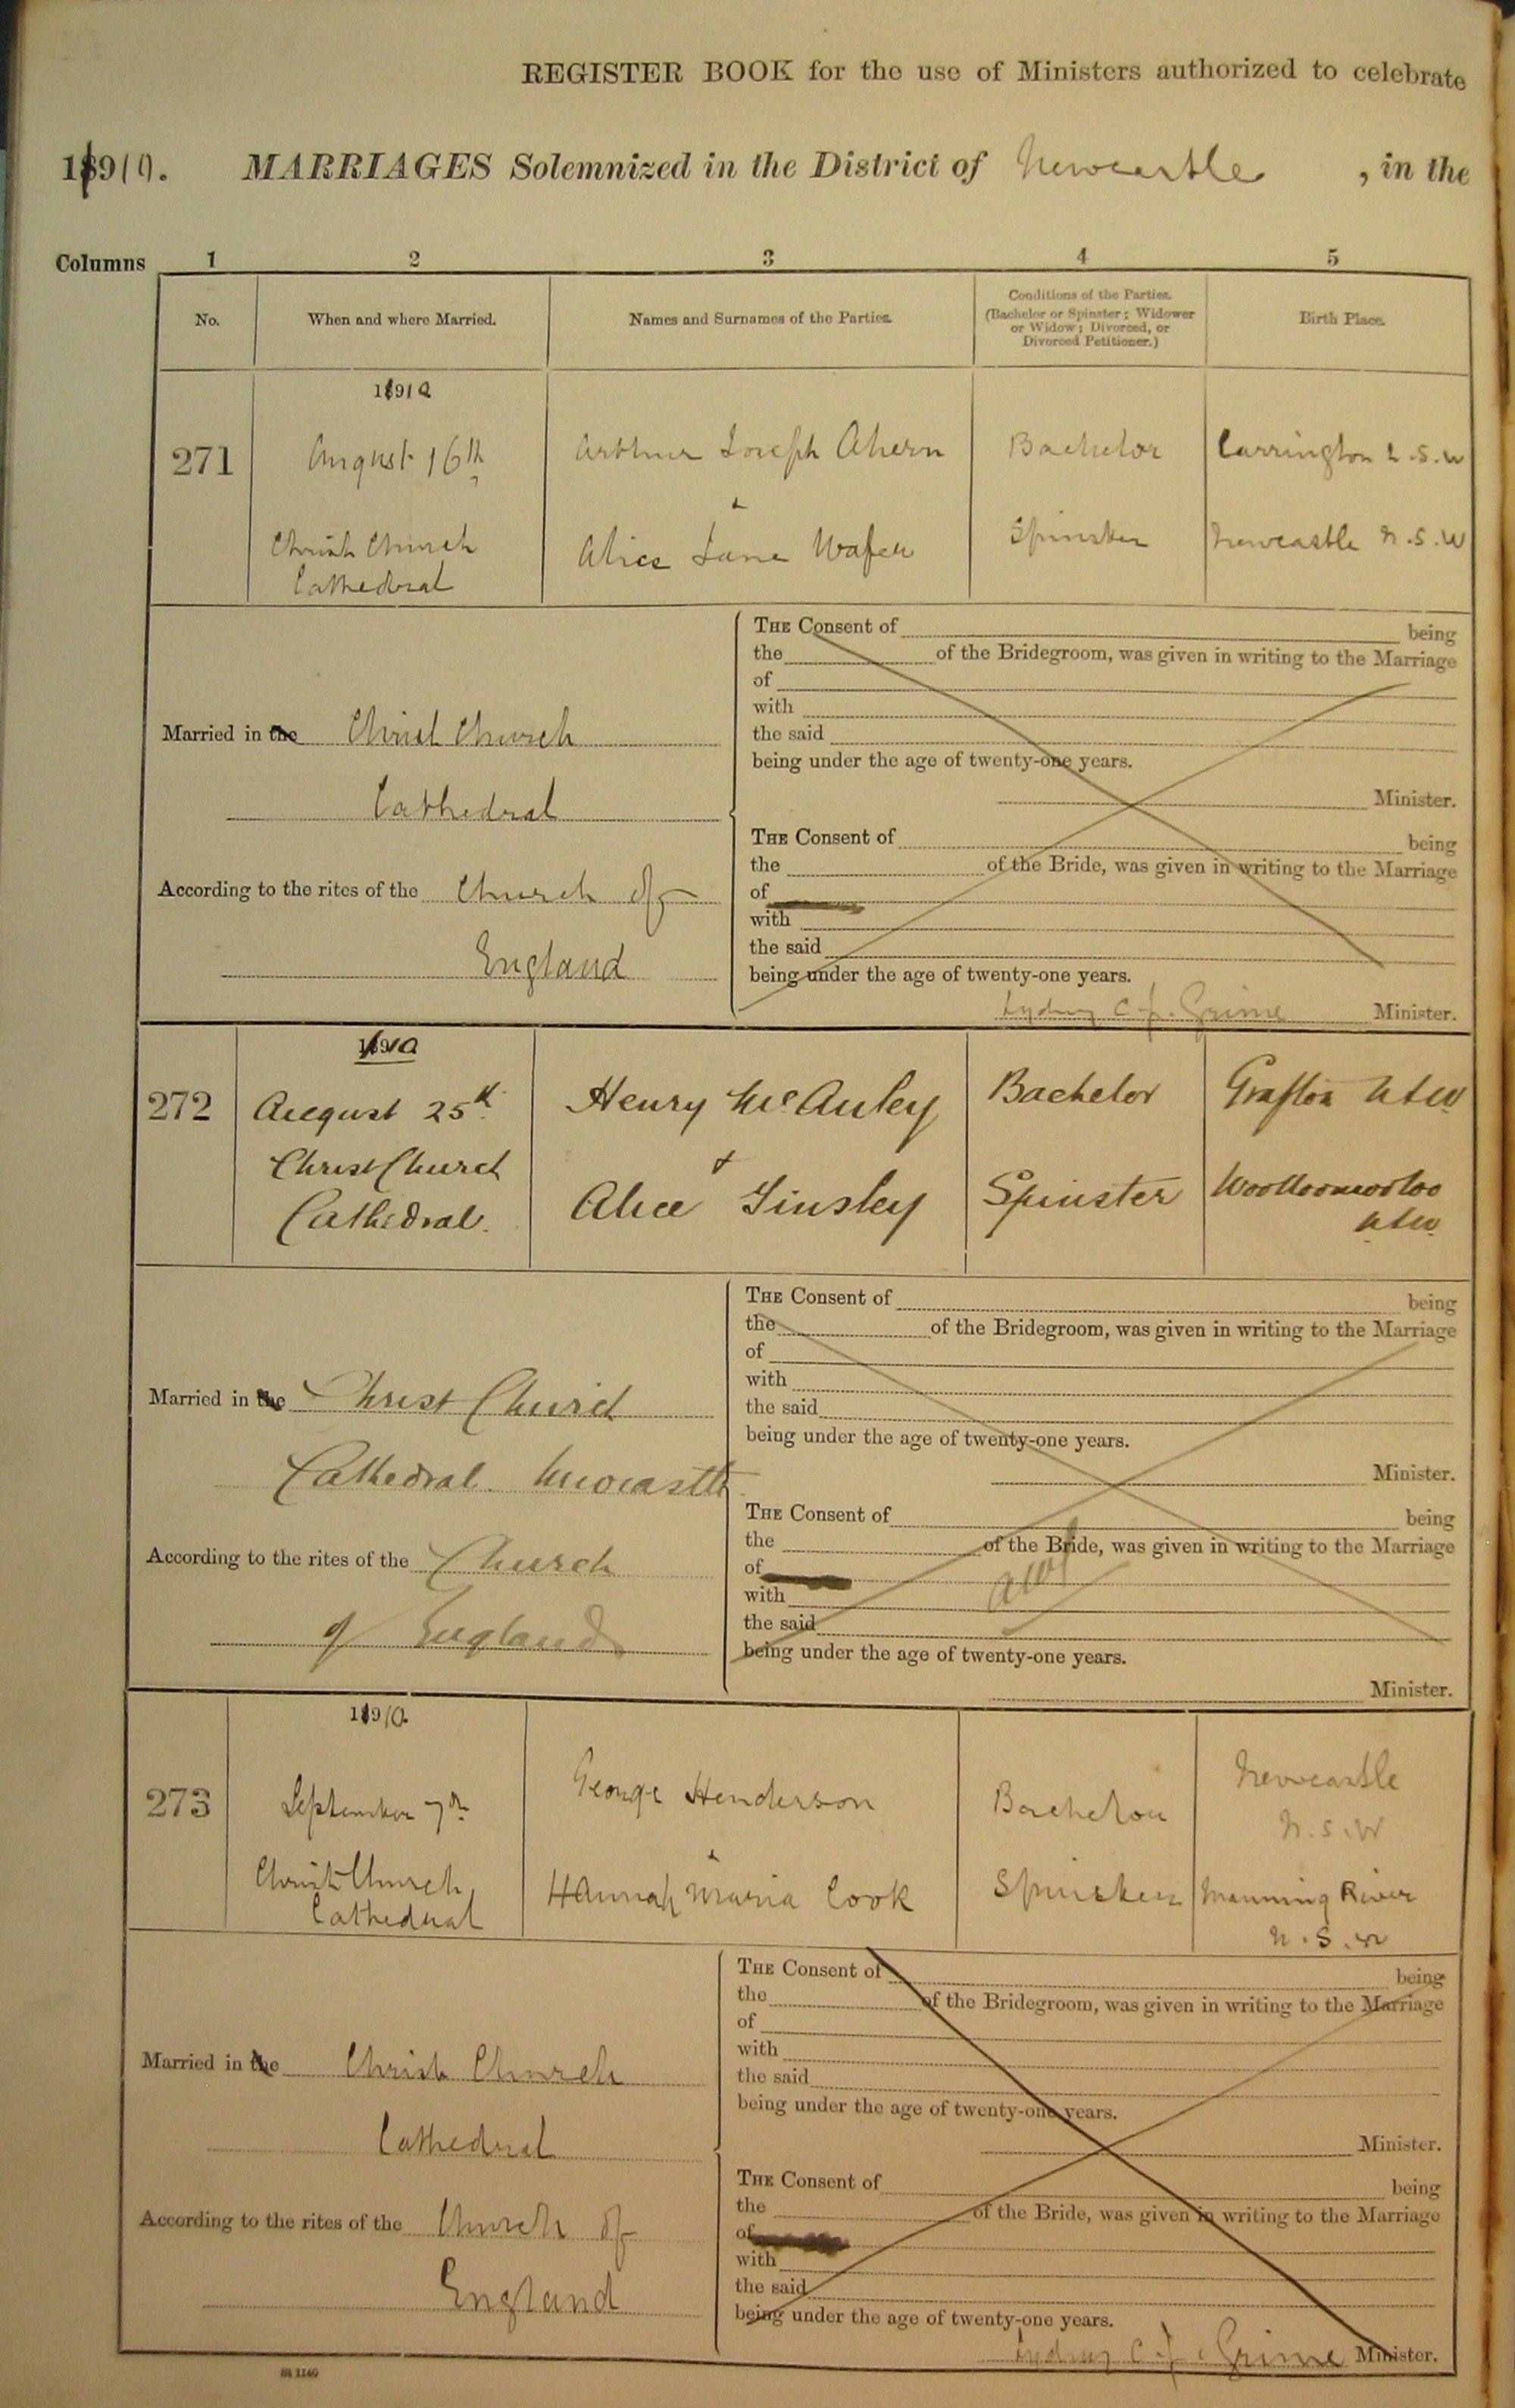 REGISTER BOOK for the use of Ministers authorized to celebrate
1910. MARRIAGES Solemnized in the District of Newcastle, in the
Columns 1 2 3 4 5
No. When and where Married. Names and Surnames of the Parties. Conditions of the Parties. (Bachelor or Spinster; Widower or Widow; Divorced, or Divorced Petitioner.) Birth Place.
1910
271 August 16th Arthur Joseph Ahern Bachelor Carrington N.S.W
&
Christ Church Alice Jane Wafer Spinster Newcastle N.S.W
Cathedral
Married in the Christ Church
Cathedral
According to the rites of the Church of
England
THE Consent of being
the of the Bridegroom, was given in writing to the Marriage
of
with
the said
being under the age of twenty-one years.
Minister.
THE Consent of being
the of the Bride, was given in writing to the Marriage
of
with
the said
being under the age of twenty-one years.
Sydney C. J. Grime Minister.
1910
272 August 25th Henry McAuley Bachelor Grafton NSW
Christ Church &
Cathedral. Alice Tinsley Spinster Woolloomooloo
NSW
Married in the Christ Church
Cathedral. Newcastle
According to the rites of the Church
of England
THE Consent of being
the of the Bridegroom, was given in writing to the Marriage
of
with
the said
being under the age of twenty-one years.
Minister.
THE Consent of being
the of the Bride, was given in writing to the Marriage
of
with
the said
being under the age of twenty-one years.
Minister.
1910.
273 September 7th George Henderson Bachelor Newcastle
N.S.W
&
Christ Church Hannah Maria Cook Spinster Manning River
Cathedral N.S.W
Married in the Christ Church
Cathedral
According to the rites of the Church of
England
THE Consent of being
the of the Bridegroom, was given in writing to the Marriage
of
with
the said
being under the age of twenty-one years.
Minister.
THE Consent of being
the of the Bride, was given in writing to the Marriage
of
with
the said
being under the age of twenty-one years.
Sydney C. J. Grime Minister.